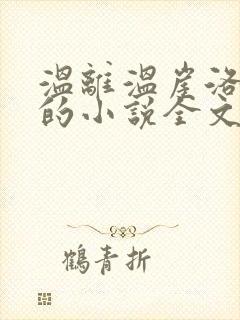 温離温崖洛
的小說全文
鶴青折